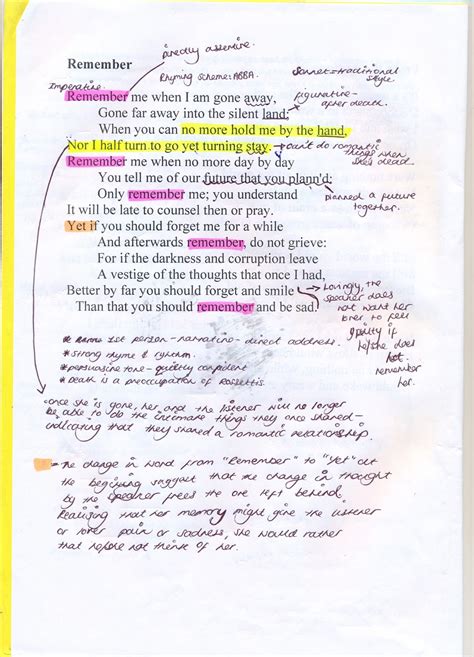 diredly assertive.
Remember
Rhyming scheme: ABBA.
Sonnet = traditional
style.
Imperative.
Remember me when I am gone away,
figurative -
after death.
Gone far away into the silent land;
When you can no more hold me by the hand,
Nor I half turn to go yet turning stay.
can't do romantic
things when
she's dead.
Remember me when no more day by day
You tell me of our future that you plann'd:
Only remember me; you understand
planned a future
together.
It will be late to counsel then or pray.
Yet if you should forget me for a while
And afterwards remember, do not grieve:
For if the darkness and corruption leave
A vestige of the thoughts that once I had,
Better by far you should forget and smile
Than that you should remember and be sad.
Lovingly, the
speaker does
not want her
lover to feel
guilty if
he/she does
not
remember
her.
* 1st person - narrative - direct address.
* strong rhyme & rhythm.
* persuasive tone - quietly confident
* Death is a preoccupation of Rossettis.
once she is gone, her and the listener will no longer
be able to do the intimate things they once shared -
indicating that they shared a romantic relationship.
* The change in word from "Remember" to "Yet" at
the beginning suggest that the change in thought
by the speaker frees the one left behind.
Realising that her memory might give the listener
or lover pain or sadness, she would rather
that he/she not think of her.